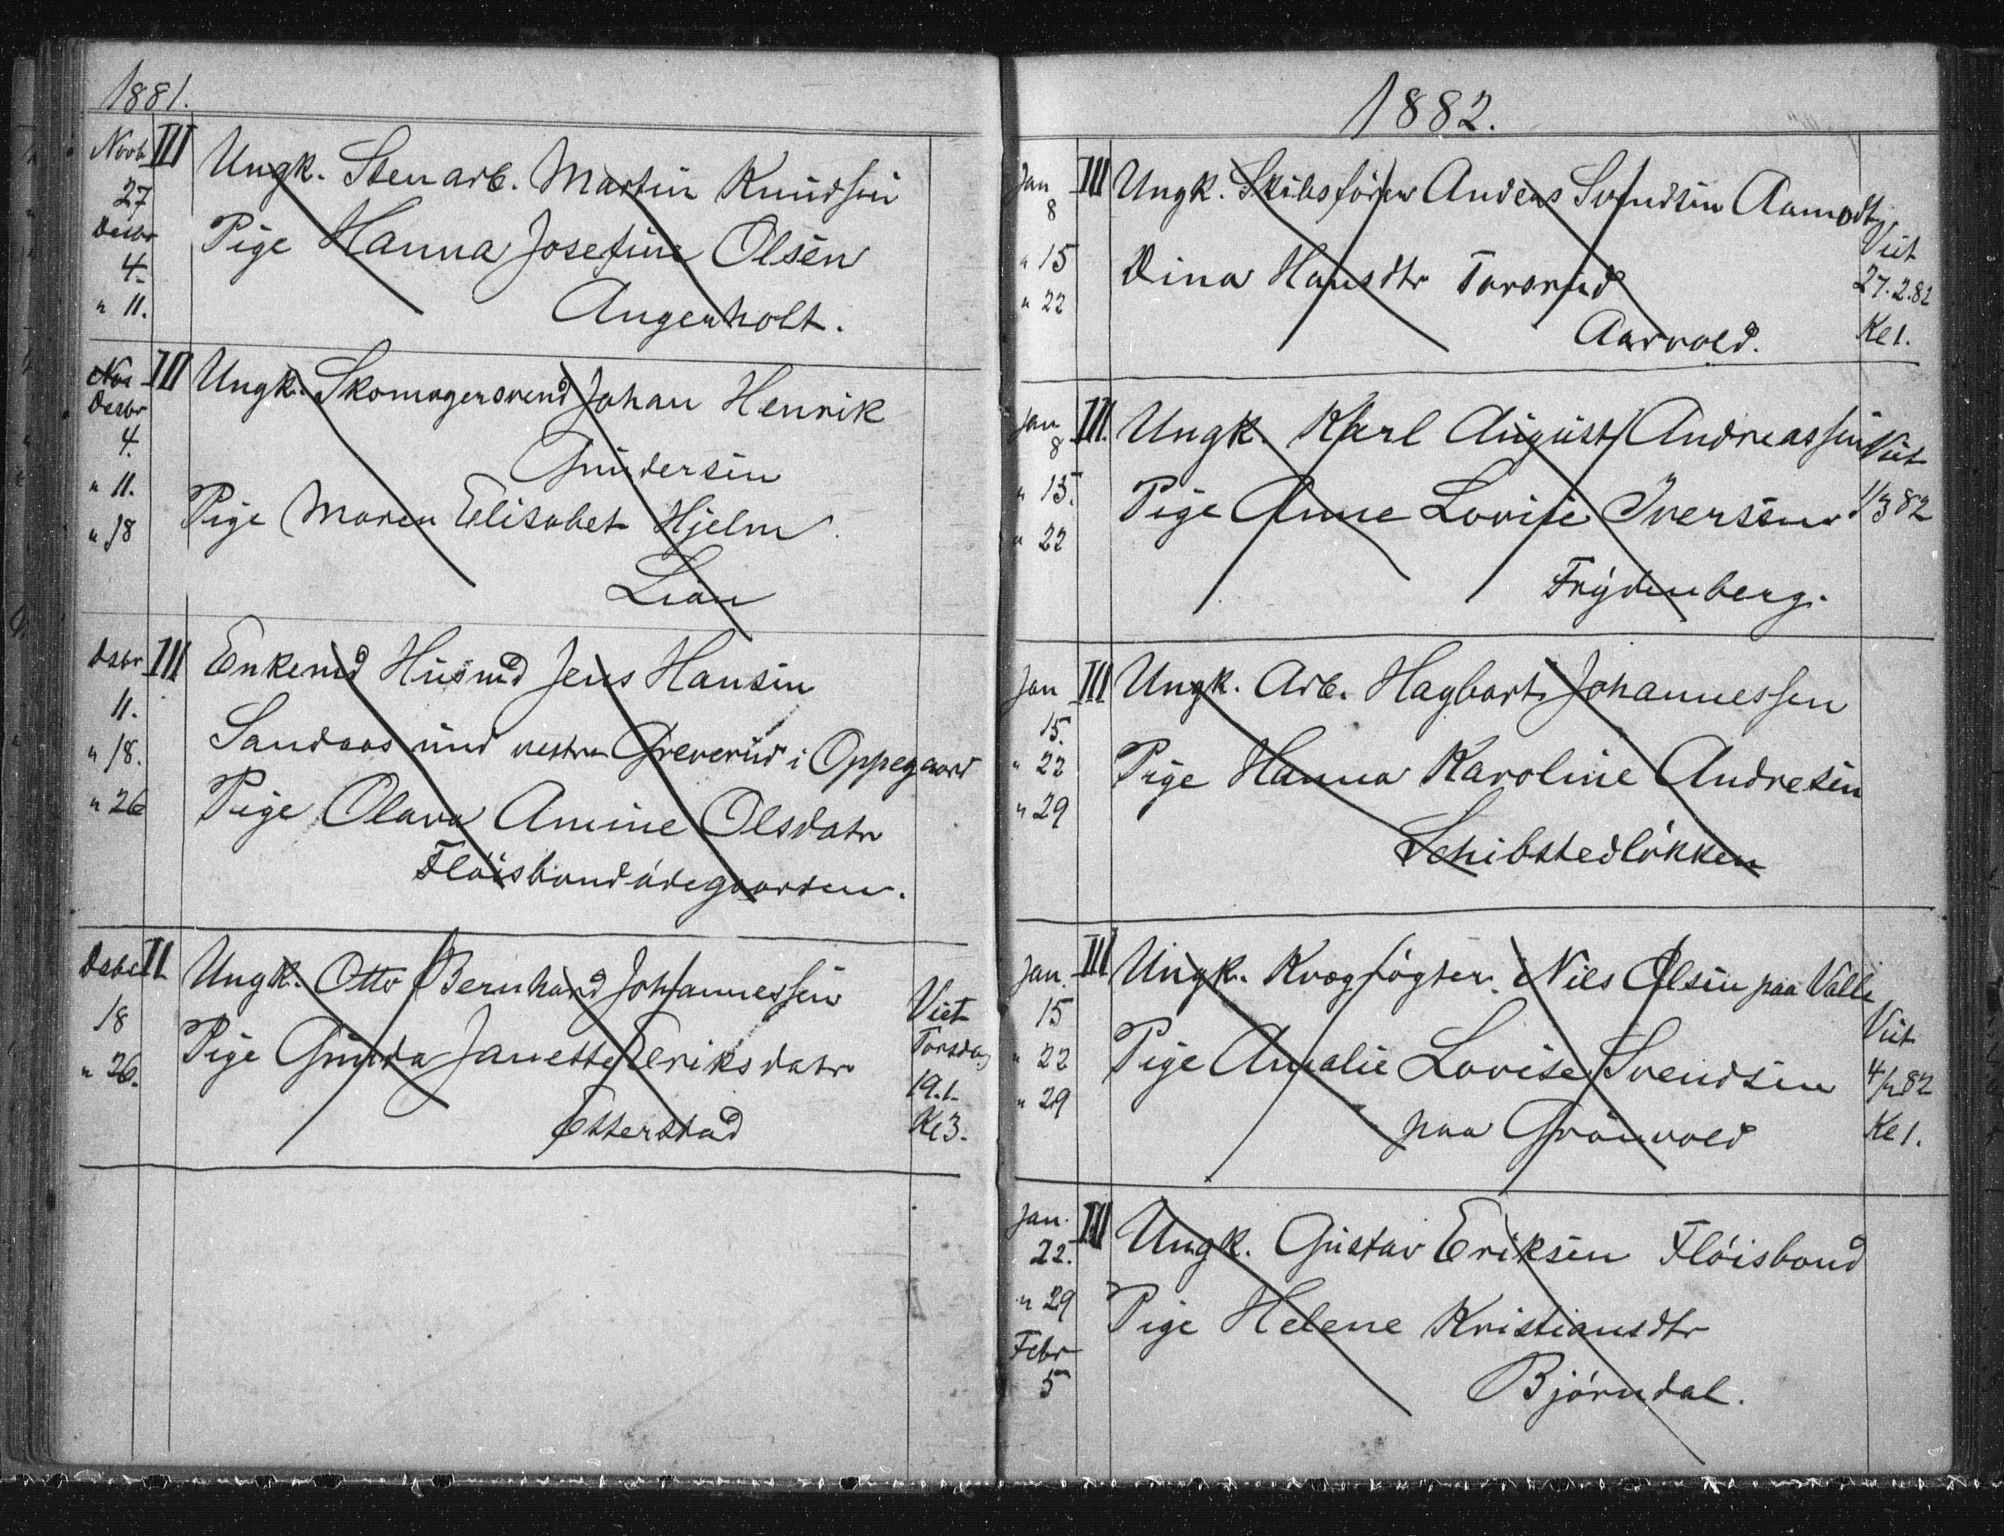 1881.
Novb III Ungk. Stenarb. Martin Knudsen
27
Desbr Pige Hanna Josefine Olsen
4
" 11. Angerholt.
Nov III Ungk. Skomagersvend Johan Henrik
Desbr
4. Gundersen
" 11.
Pige Maren Elisabet Hjelm
" 18
Lian
Dsbr III Enkemd Husmd Jens Hansen
11.
" 18. Sandaas und vestre Greverud i Oppegaard
" 26 Pige Olava Amine Olsdatr
Fløisbondødegaarden.
Dsbr II Ungk. Otto Bernhard Johannessen
18 Viet
Pige Gunda Janette Eriksdatr Torsdag
" 26. 19.1.
Etterstad Kl 3.
1882.
Jan III Ungk. Skibsfører Anders Svendsen Aamodt
8 Viet
" 15 Dina Hansdtr Torsrud 27.2.82
" 22
Aarvold. Kl 1.
Jan III. Ungk. Karl August Andreassen Viet
8
" 15. Pige Anne Lovise Iversen 1/3 82
" 22
Frydenberg.
Jan III Ungk. Arb. Hagbart Johannessen
15.
" 22 Pige Hanna Karoline Andresen
" 29
Schibstedløkken
Jan. III Ungk. Kvægrøgter Nils Olsen paa Valle
15 Viet
" 22 Pige Amalie Lovise Svendsen 82
" 29
paa Grønvold Kl 1.
Jan. III Ungk. Gustav Eriksen Fløisbond
22.
" 29 Pige Helene Kristiansdtr
Febr
5 Bjørndal.